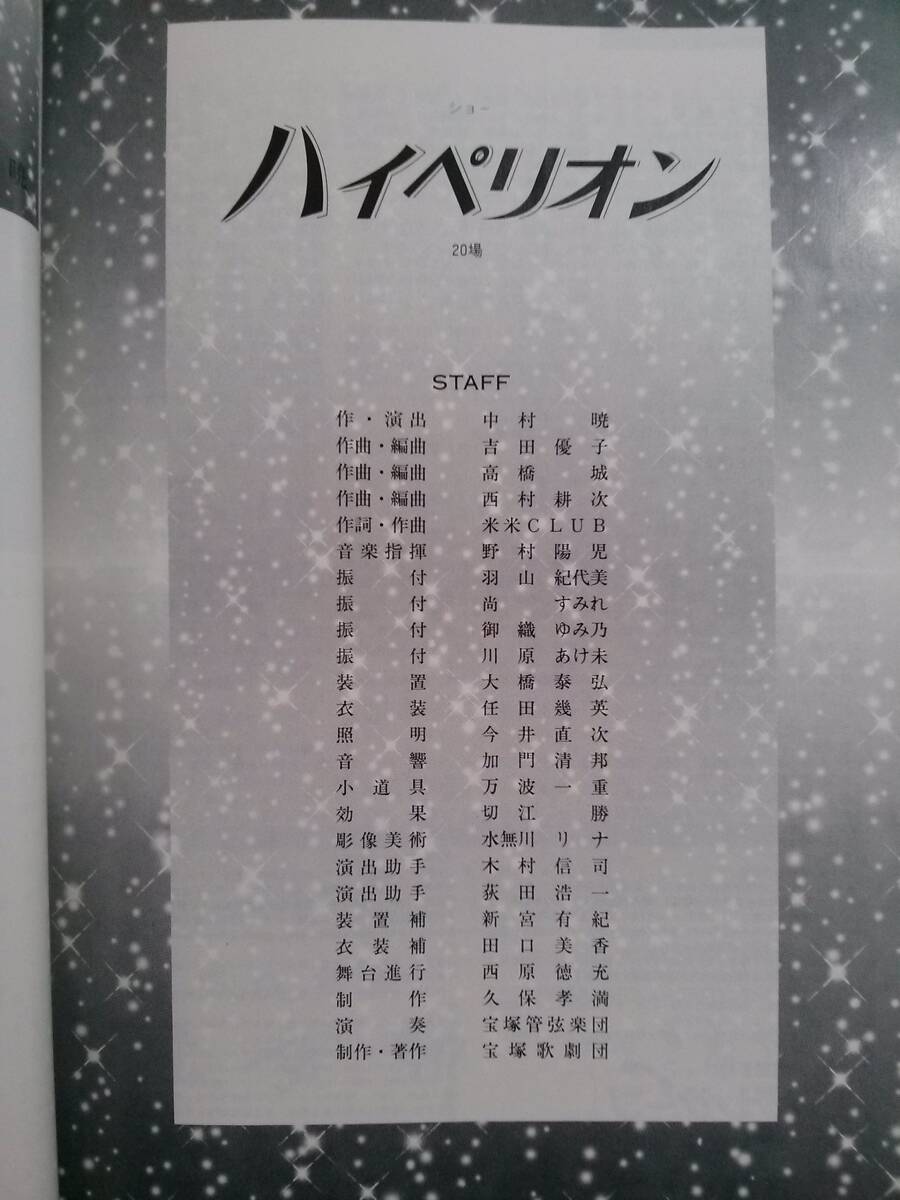 ショー
ハイペリオン
20場
STAFF
作・演出 中村 暁
作曲・編曲 吉田優子
作曲・編曲 高橋 城
作曲・編曲 西村耕次
作詞・作曲 米米CLUB
音楽指揮 野村陽児
振付 羽山紀代美
振付 尚 すみれ
振付 御織ゆみ乃
振付 川原あけ未
装置 大橋泰弘
衣装 任田幾英
照明 今井直次
音響 加門清邦
小道具 万波一重
効果 切江 勝
彫像美術 水無川リナ
演出助手 木村信司
演出助手 荻田浩一
装置補 新宮有紀
衣装補 田口美香
舞台進行 西原徳充
制作 久保孝満
演奏 宝塚管弦楽団
制作・著作 宝塚歌劇団